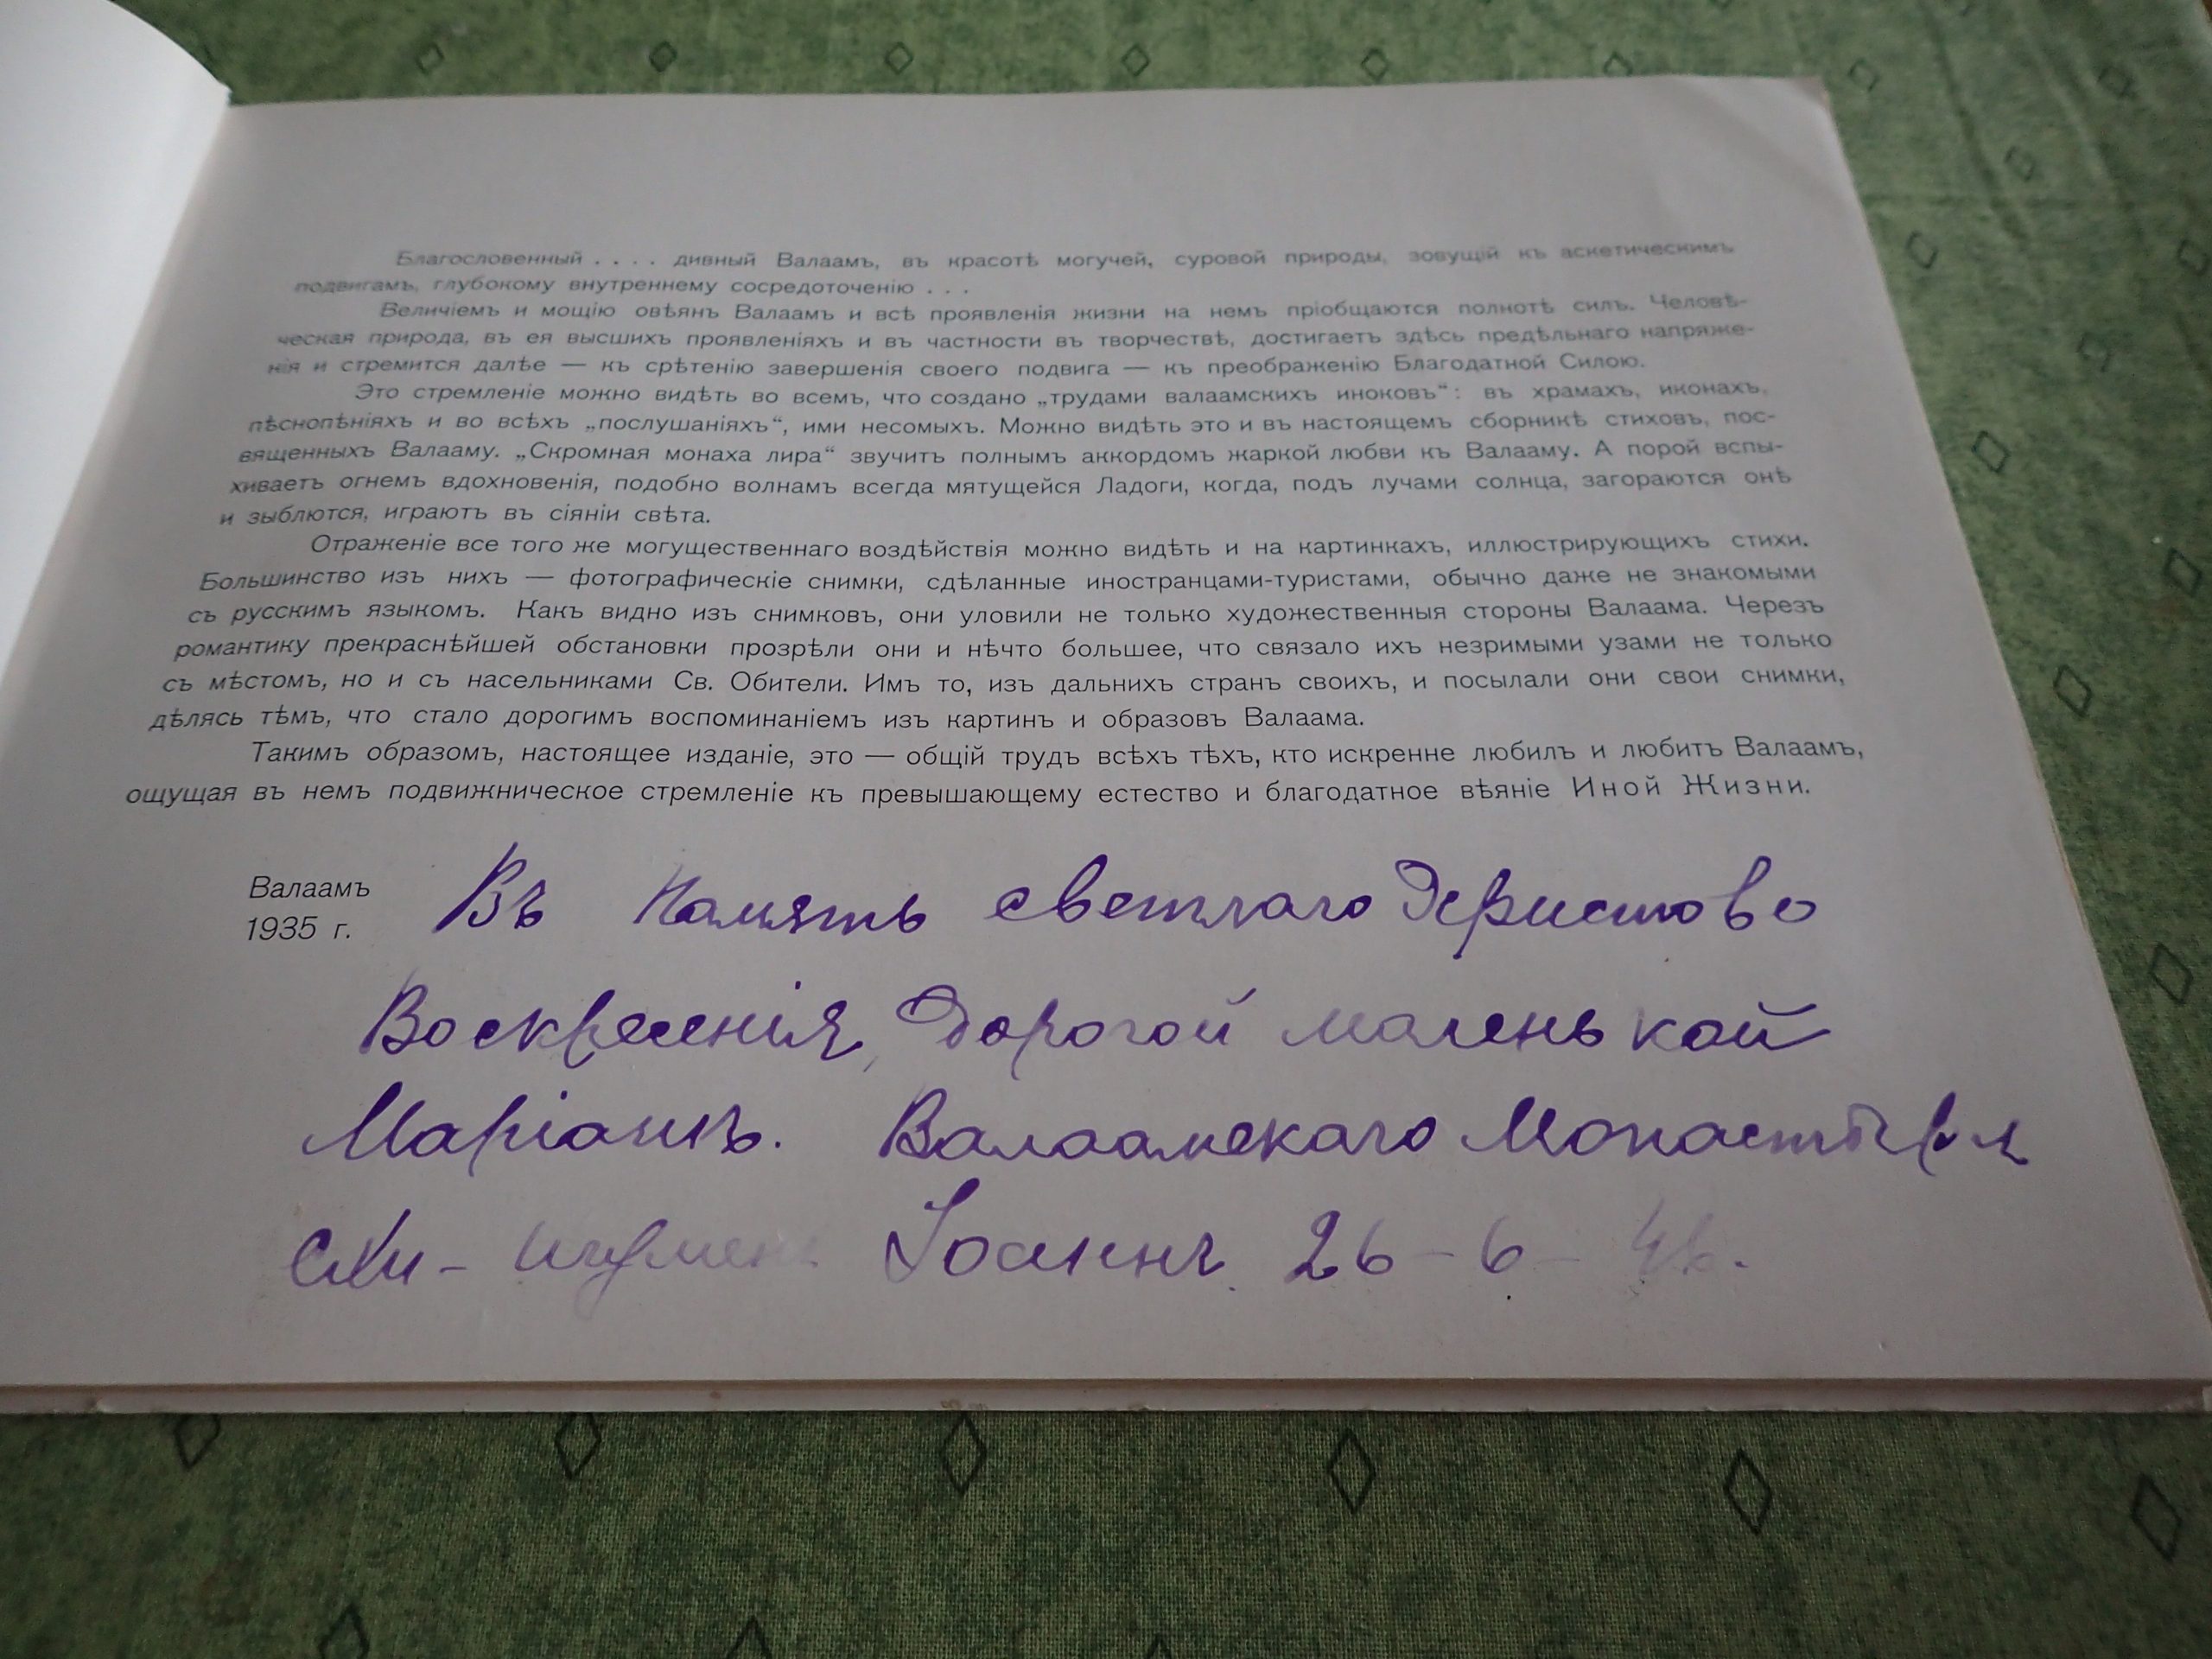 Благословенный . . . . дивный Валаамъ, въ красотѣ могучей, суровой природы, зовущій къ аскетическимъ
подвигамъ, глубокому внутреннему сосредоточенію . . .
Величіемъ и мощію овѣянъ Валаамъ и всѣ проявленія жизни на немъ пріобщаются полнотѣ силъ. Человѣ-
ческая природа, въ ея высшихъ проявленіяхъ и въ частности въ творчествѣ, достигаетъ здѣсь предѣльнаго напряже-
нія и стремится далѣе — къ срѣтенію завершенія своего подвига — къ преображенію Благодатной Силою.
Это стремленіе можно видѣть во всемъ, что создано „трудами валаамскихъ иноковъ“: въ храмахъ, иконахъ,
пѣснопѣніяхъ и во всѣхъ „послушаніяхъ“, ими несомыхъ. Можно видѣть это и въ настоящемъ сборникѣ стиховъ, пос-
вященныхъ Валааму. „Скромная монаха лира“ звучитъ полнымъ аккордомъ жаркой любви къ Валааму. А порой вспы-
хиваетъ огнемъ вдохновенія, подобно волнамъ всегда мятущейся Ладоги, когда, подъ лучами солнца, загораются онѣ
и зыблются, играютъ въ сіяніи свѣта.
Отраженіе все того же могущественнаго воздѣйствія можно видѣть и на картинкахъ, иллюстрирующихъ стихи.
Большинство изъ нихъ — фотографическіе снимки, сдѣланные иностранцами-туристами, обычно даже не знакомыми
съ русскимъ языкомъ. Какъ видно изъ снимковъ, они уловили не только художественныя стороны Валаама. Черезъ
романтику прекраснѣйшей обстановки прозрѣли они и нѣчто большее, что связало ихъ незримыми узами не только
съ мѣстомъ, но и съ насельниками Св. Обители. Имъ то, изъ дальнихъ странъ своихъ, и посылали они свои снимки,
дѣлясь тѣмъ, что стало дорогимъ воспоминаніемъ изъ картинъ и образовъ Валаама.
Такимъ образомъ, настоящее изданіе, это — общій трудъ всѣхъ тѣхъ, кто искренне любилъ и любитъ Валаамъ,
ощущая въ немъ подвижническое стремленіе къ превышающему естество и благодатное вѣяніе Иной Жизни.
Валаамъ
1935 г.
Въ Память светлаго Христово
Воскресенія, Дорогой маленькой
Маріаннѣ. Валаамскаго Монастыря
Схи-игумен Іоаннъ. 26-6-46.